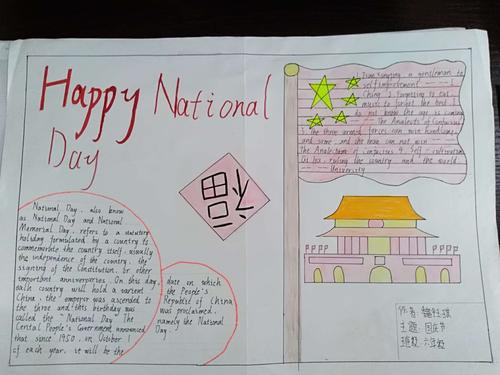 Happy National
Day
福
National Day, also know
as National Day and National
Memorial Day, refers to a statutory
holiday formulated by a country to
commemorate the country itself. usually
the independence of the country, the
signing of the Constitution, or other
important anniversaries. On this day,
each country will hold a varient
China, the emperor was ascended to
the throne and this birthday was
called the "National Day" The
Central People's Government announced
that since 1950, on October 1
of each year, it will be the
date on which
the People's
Republic of China
was proclaimed,
namely the National
Day.
a gentleman to
self improvement
China 2. Forgetting to eat
music to forget the
do not know the age is coming
The Analects of Confucius
3. The three armed forces can win handsome,
and some, and she
can not win
The Analects of Confucius 4. Self-cultivation
ruling the country and the world
University
作者:
主题:国庆节
班级:六年级